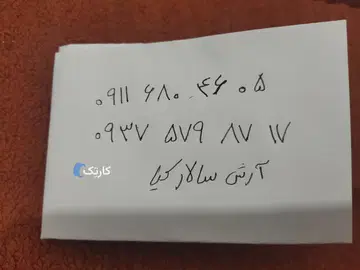 ۰۹۱۱ ۶۸۰ ۴۶ ۰۵
۰۹۳۷ ۵۷۹ ۸۷ ۱۷
کارتک
آرش سالارکیا